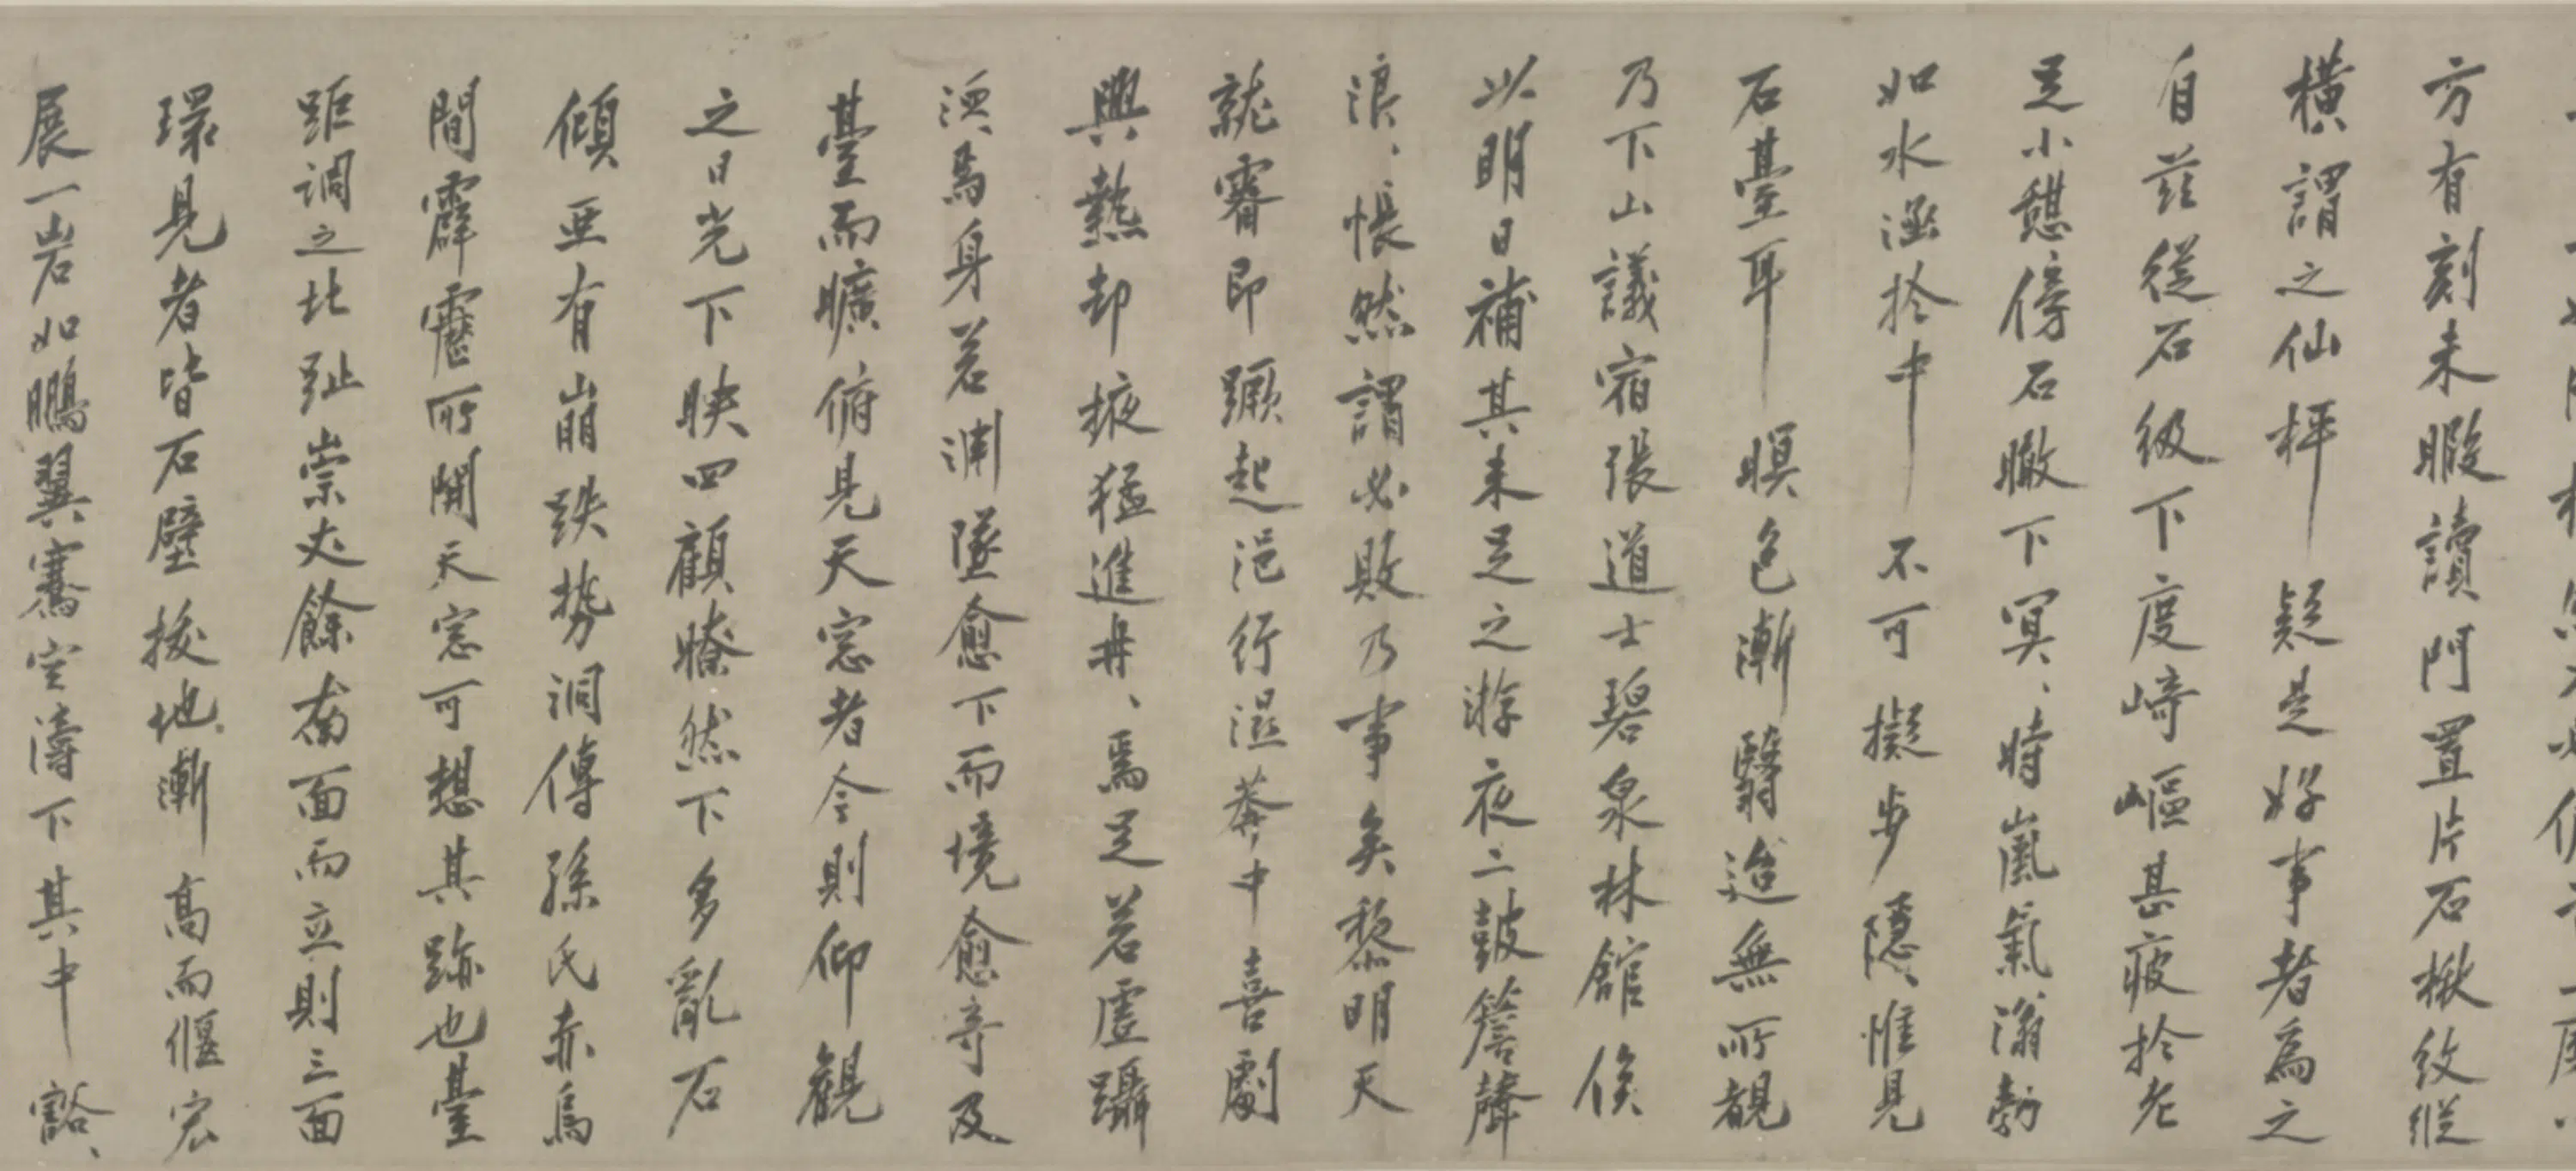 方有刻未暇讀門置片石楸紋縱
橫謂之仙枰疑是好事者為之
自茲從石級下度崎嶇甚疲於老
足小憩傍石瞰下冥、時嵐氣滃勃
如水涵於中不可擬步隱、惟見
石臺耳暝色漸翳迨無所覩
乃下山議宿張道士碧泉林館俟
以明日補其未足之游夜二鼓簷聲
浪、悵然謂必敗乃事矣黎明天
就霽即蹶起浥行濕莽中喜劇
興熱却掖猛進冉、焉足若虛躡
須焉身若淵墜愈下而境愈奇及
臺而曠俯見天窓者今則仰觀
之日光下映四顧瞭然下多亂石
傾亞有崩跌勢洞傳孫氏赤烏
間霹靂所開天窓可想其跡也臺
距洞之北趾崇丈餘南面而立則三面
環見者皆石壁拔地漸高而偃宏
展一岩如鵬翼騫空濤下其中豁、